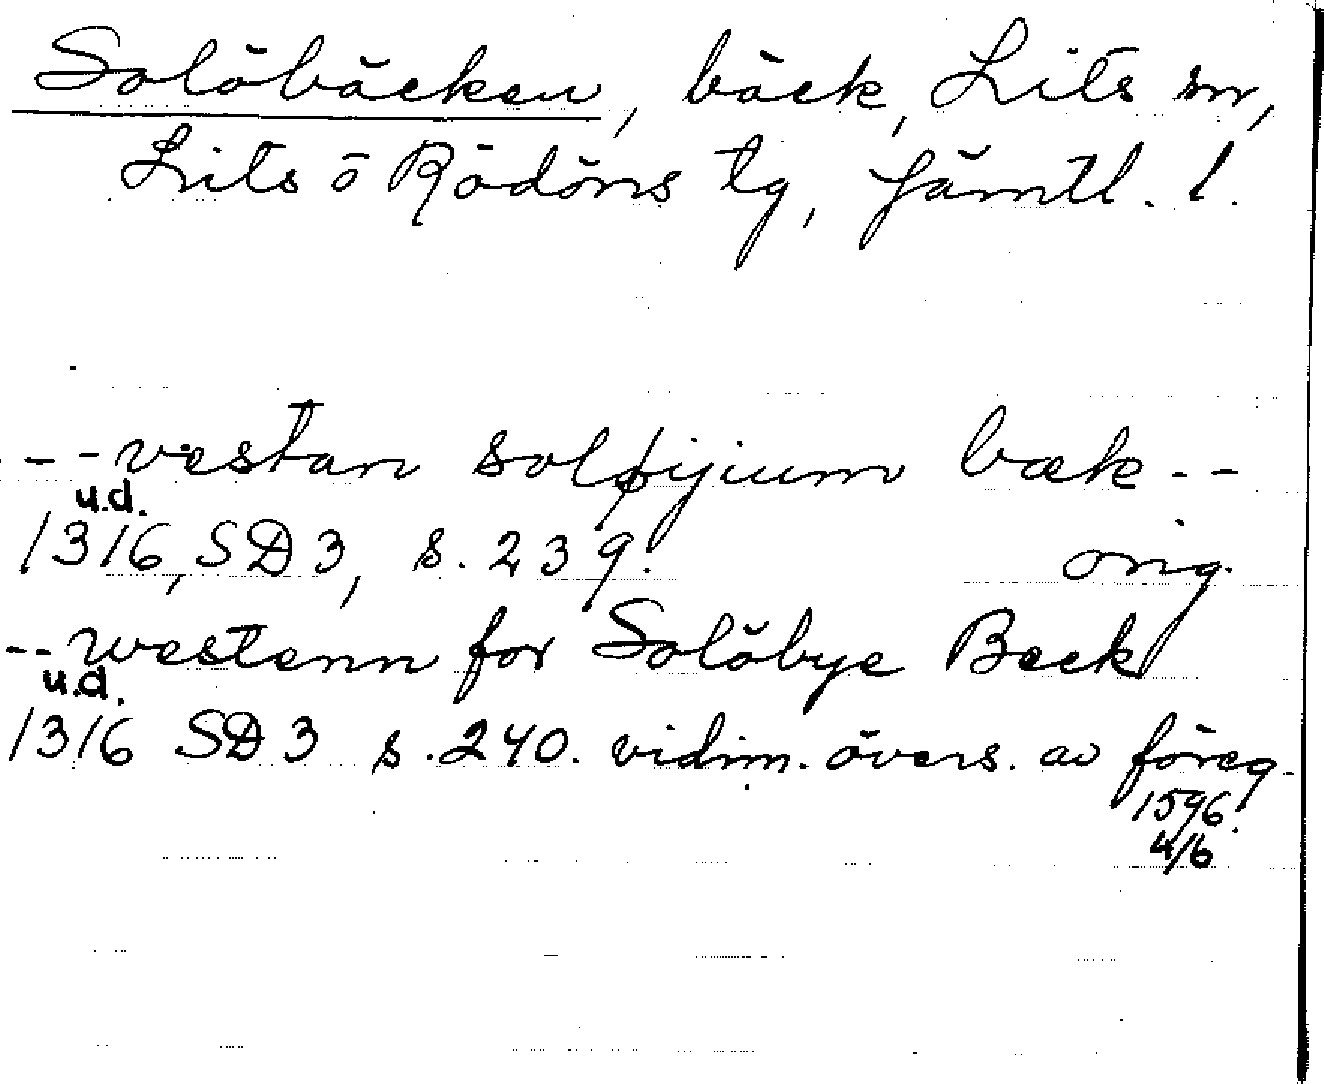 Solöbäcken, bäck, Lits sn,
Lits o Rödöns tg, Jämtl. l.
--- vestan soløyium bæk --
u.d.
1316, SD 3, s. 239. orig.
-- westenn for Solöbye Beck
u.d.
1316 SD 3 s. 240. vidim. övers. av föreg.
1596
4/6